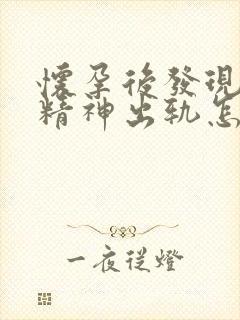 懷孕後發現
精神出軌怎
一夜從燈